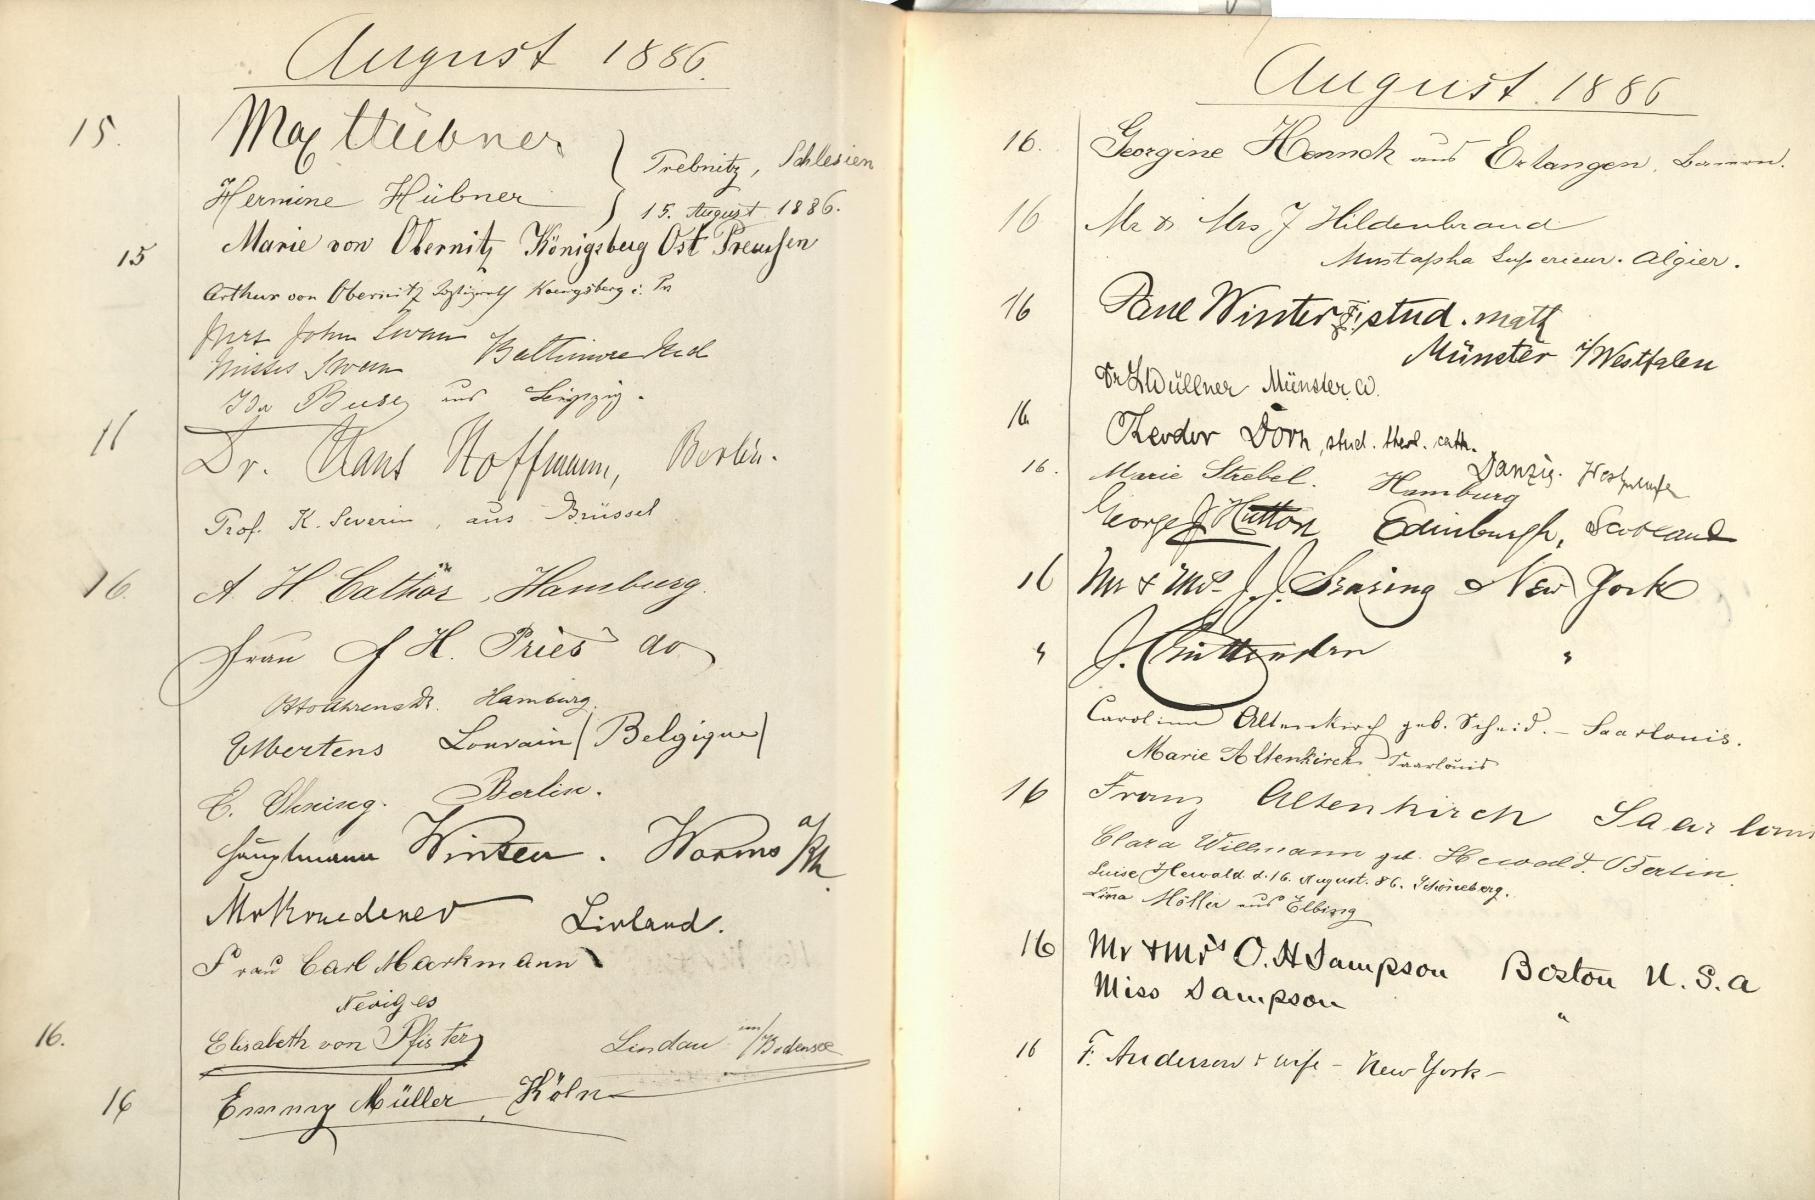 August 1886.
15. Max Hübner
Hermine Hübner
Trebnitz, Schlesien
15. August 1886.
15 Marie von Obernitz Königsberg Ost Preußen
Arthur von Obernitz Koenigsberg i. Pr
Mrs John Swan
Misses Swan Baltimore Md
Ida Buse aus Leipzig.
Dr. Hans Hoffmann, Berlin.
Prof. K. Severin, aus Brüssel
16. A H Cathör, Hamburg.
Frau J H. Pries do
Hamburg.
Mertens Louvain (Belgique)
E. Berlin.
Hauptmann Winter. Worms a/Rh.
Livland.
Frau Carl Markmann
Neviges
16. Elisabeth von Pfister Lindau im/Bodensee
16 Emmy Müller, Köln
August. 1886
16. Georgine Hennch aus Erlangen, Baiern.
16 Mr & Mrs J Hildenbrand
Mustapha Superieur. Algier.
16 Paul Winter, stud. math
Münster i/Westfalen
Dr Wüllner Münster W.
16. Theodor Dorn, stud. theol. cath.
Danzig. Westpreußen
16. Marie Strebel. Hamburg
George J Hutton Edinburgh, Scotland
16 Mr & Mrs J. J. Searing New York
" J. Cruttenden "
Caroline Altenkirch geb. Scheid. – Saarlouis.
Marie Altenkirch Saarlouis
16 Franz Altenkirch Saarlouis
Clara Willmann geb. Hewald. Berlin.
Luise Hewald d. 16. August. 86. Schöneberg.
Lina Möller aus Elbing
16 Mr & Mrs O. H Sampson Boston U. S. a
Miss Sampson "
16 F. Anderson & wife – New York –